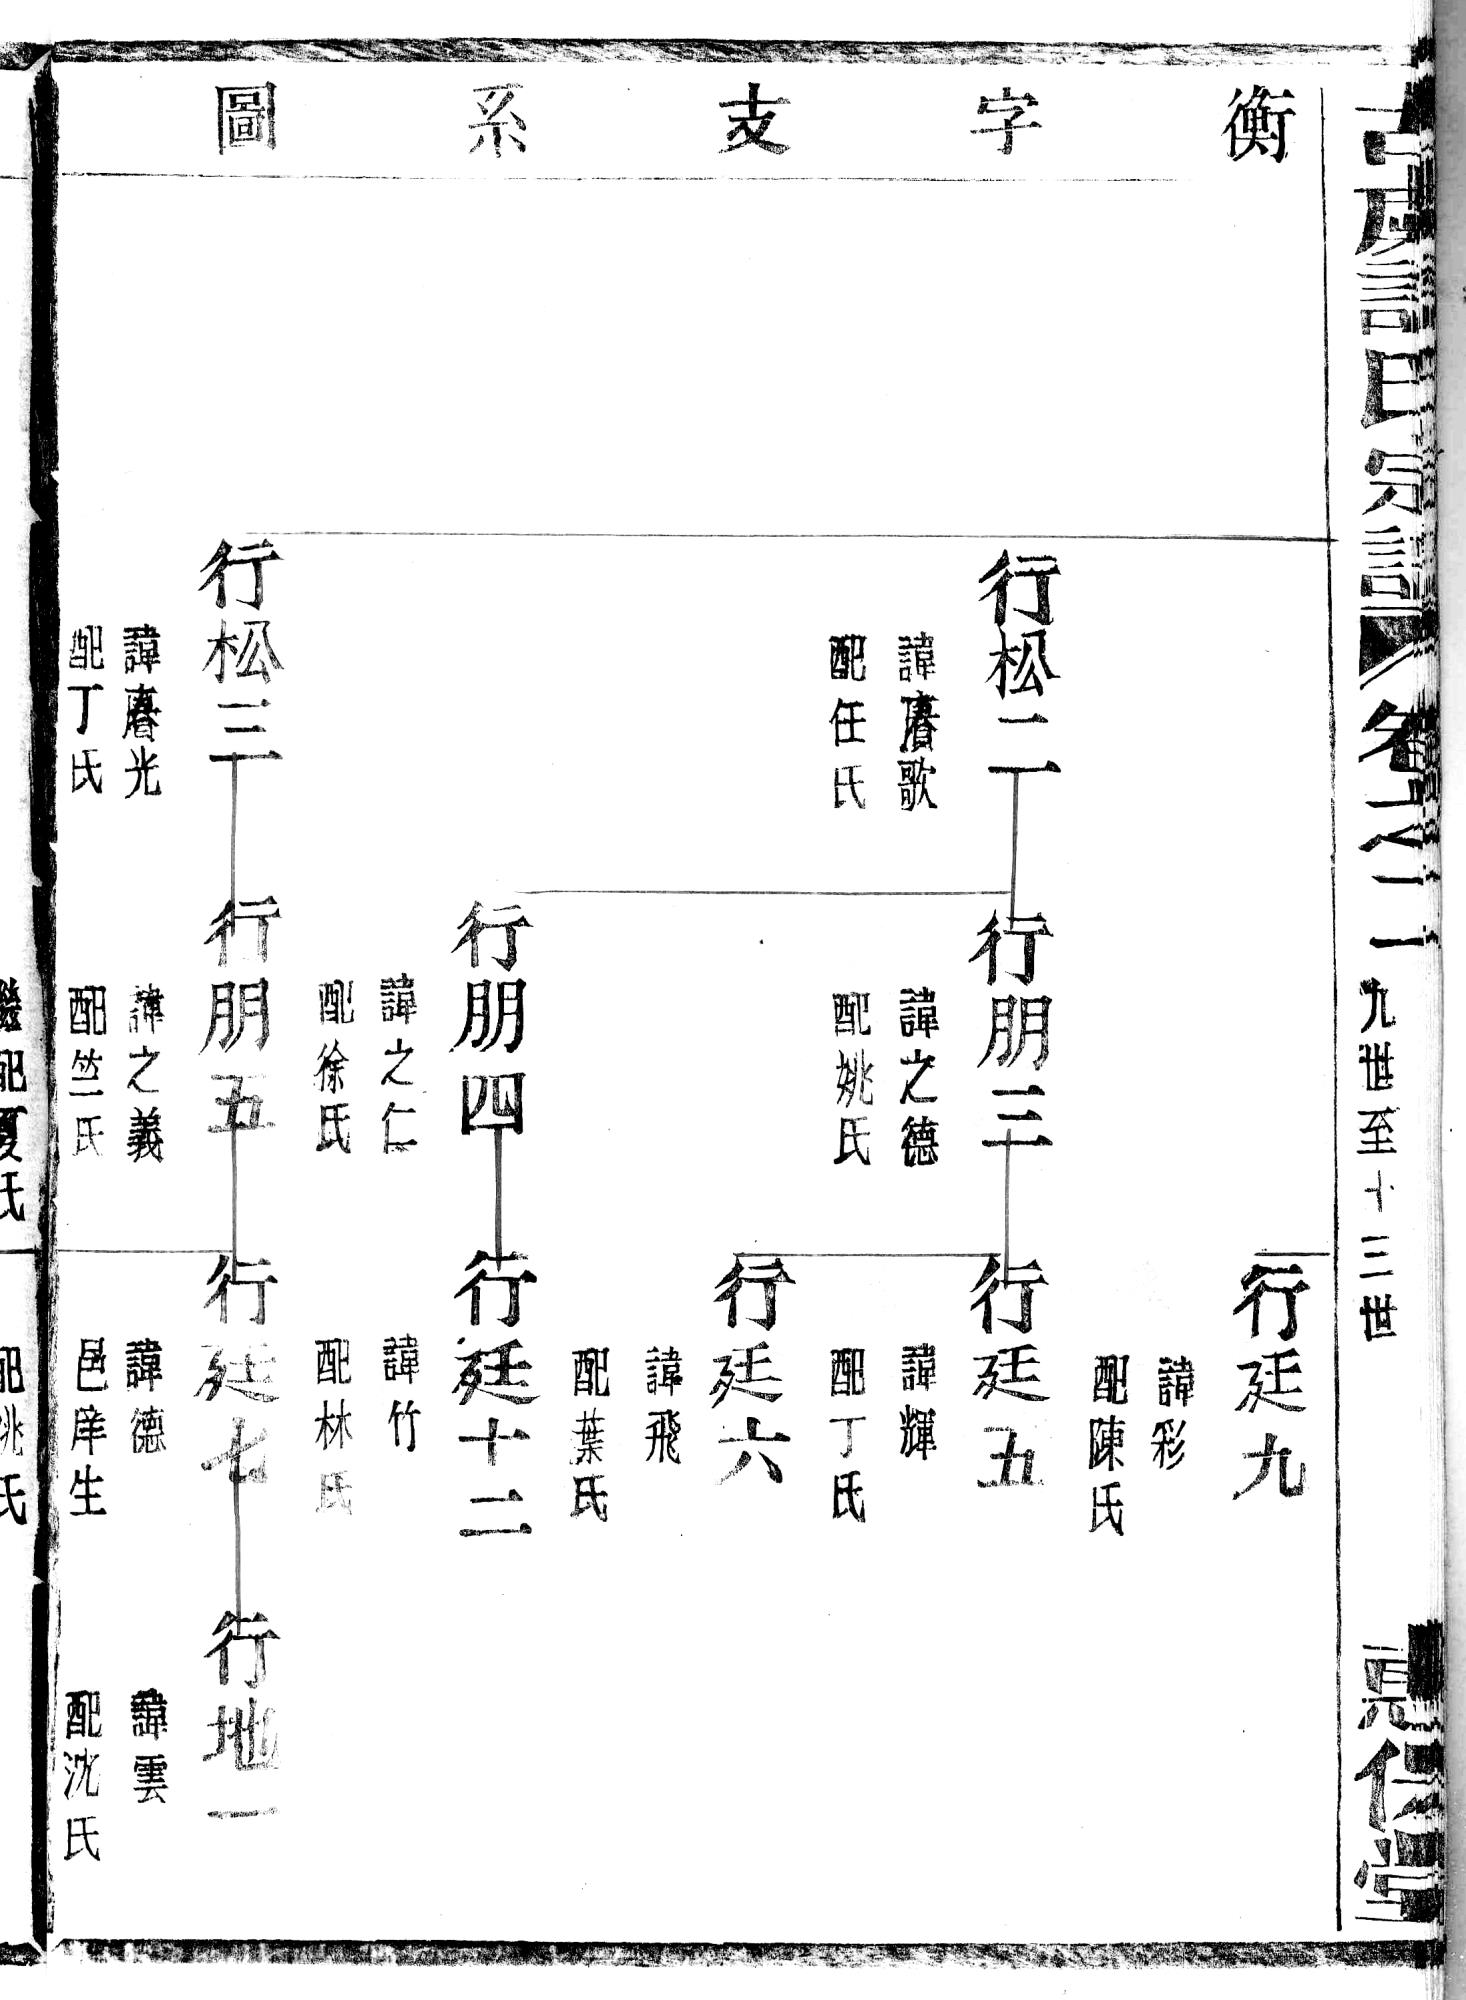 衡字支系圖
氏宗譜
卷之二
九世至十三世
仁堂
行松二
諱賡歌
配任氏
行松三
諱賡光
配丁氏
行朋三
諱之德
配姚氏
行朋四
諱之仁
配徐氏
行朋五
諱之義
配竺氏
行廷九
諱彩
配陳氏
行廷五
諱輝
配丁氏
行廷六
諱飛
配葉氏
行廷十二
諱竹
配林氏
行廷七
諱德
邑庠生
行地一
諱雲
配沈氏
配夏氏
配姚氏